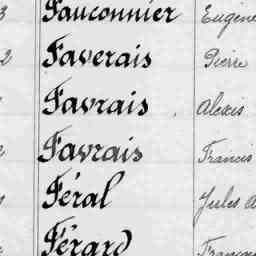 Fauconnier Eugène
Faverais Pierre
Favrais Alexis
Favrais Francis
Féral Jules
Férard